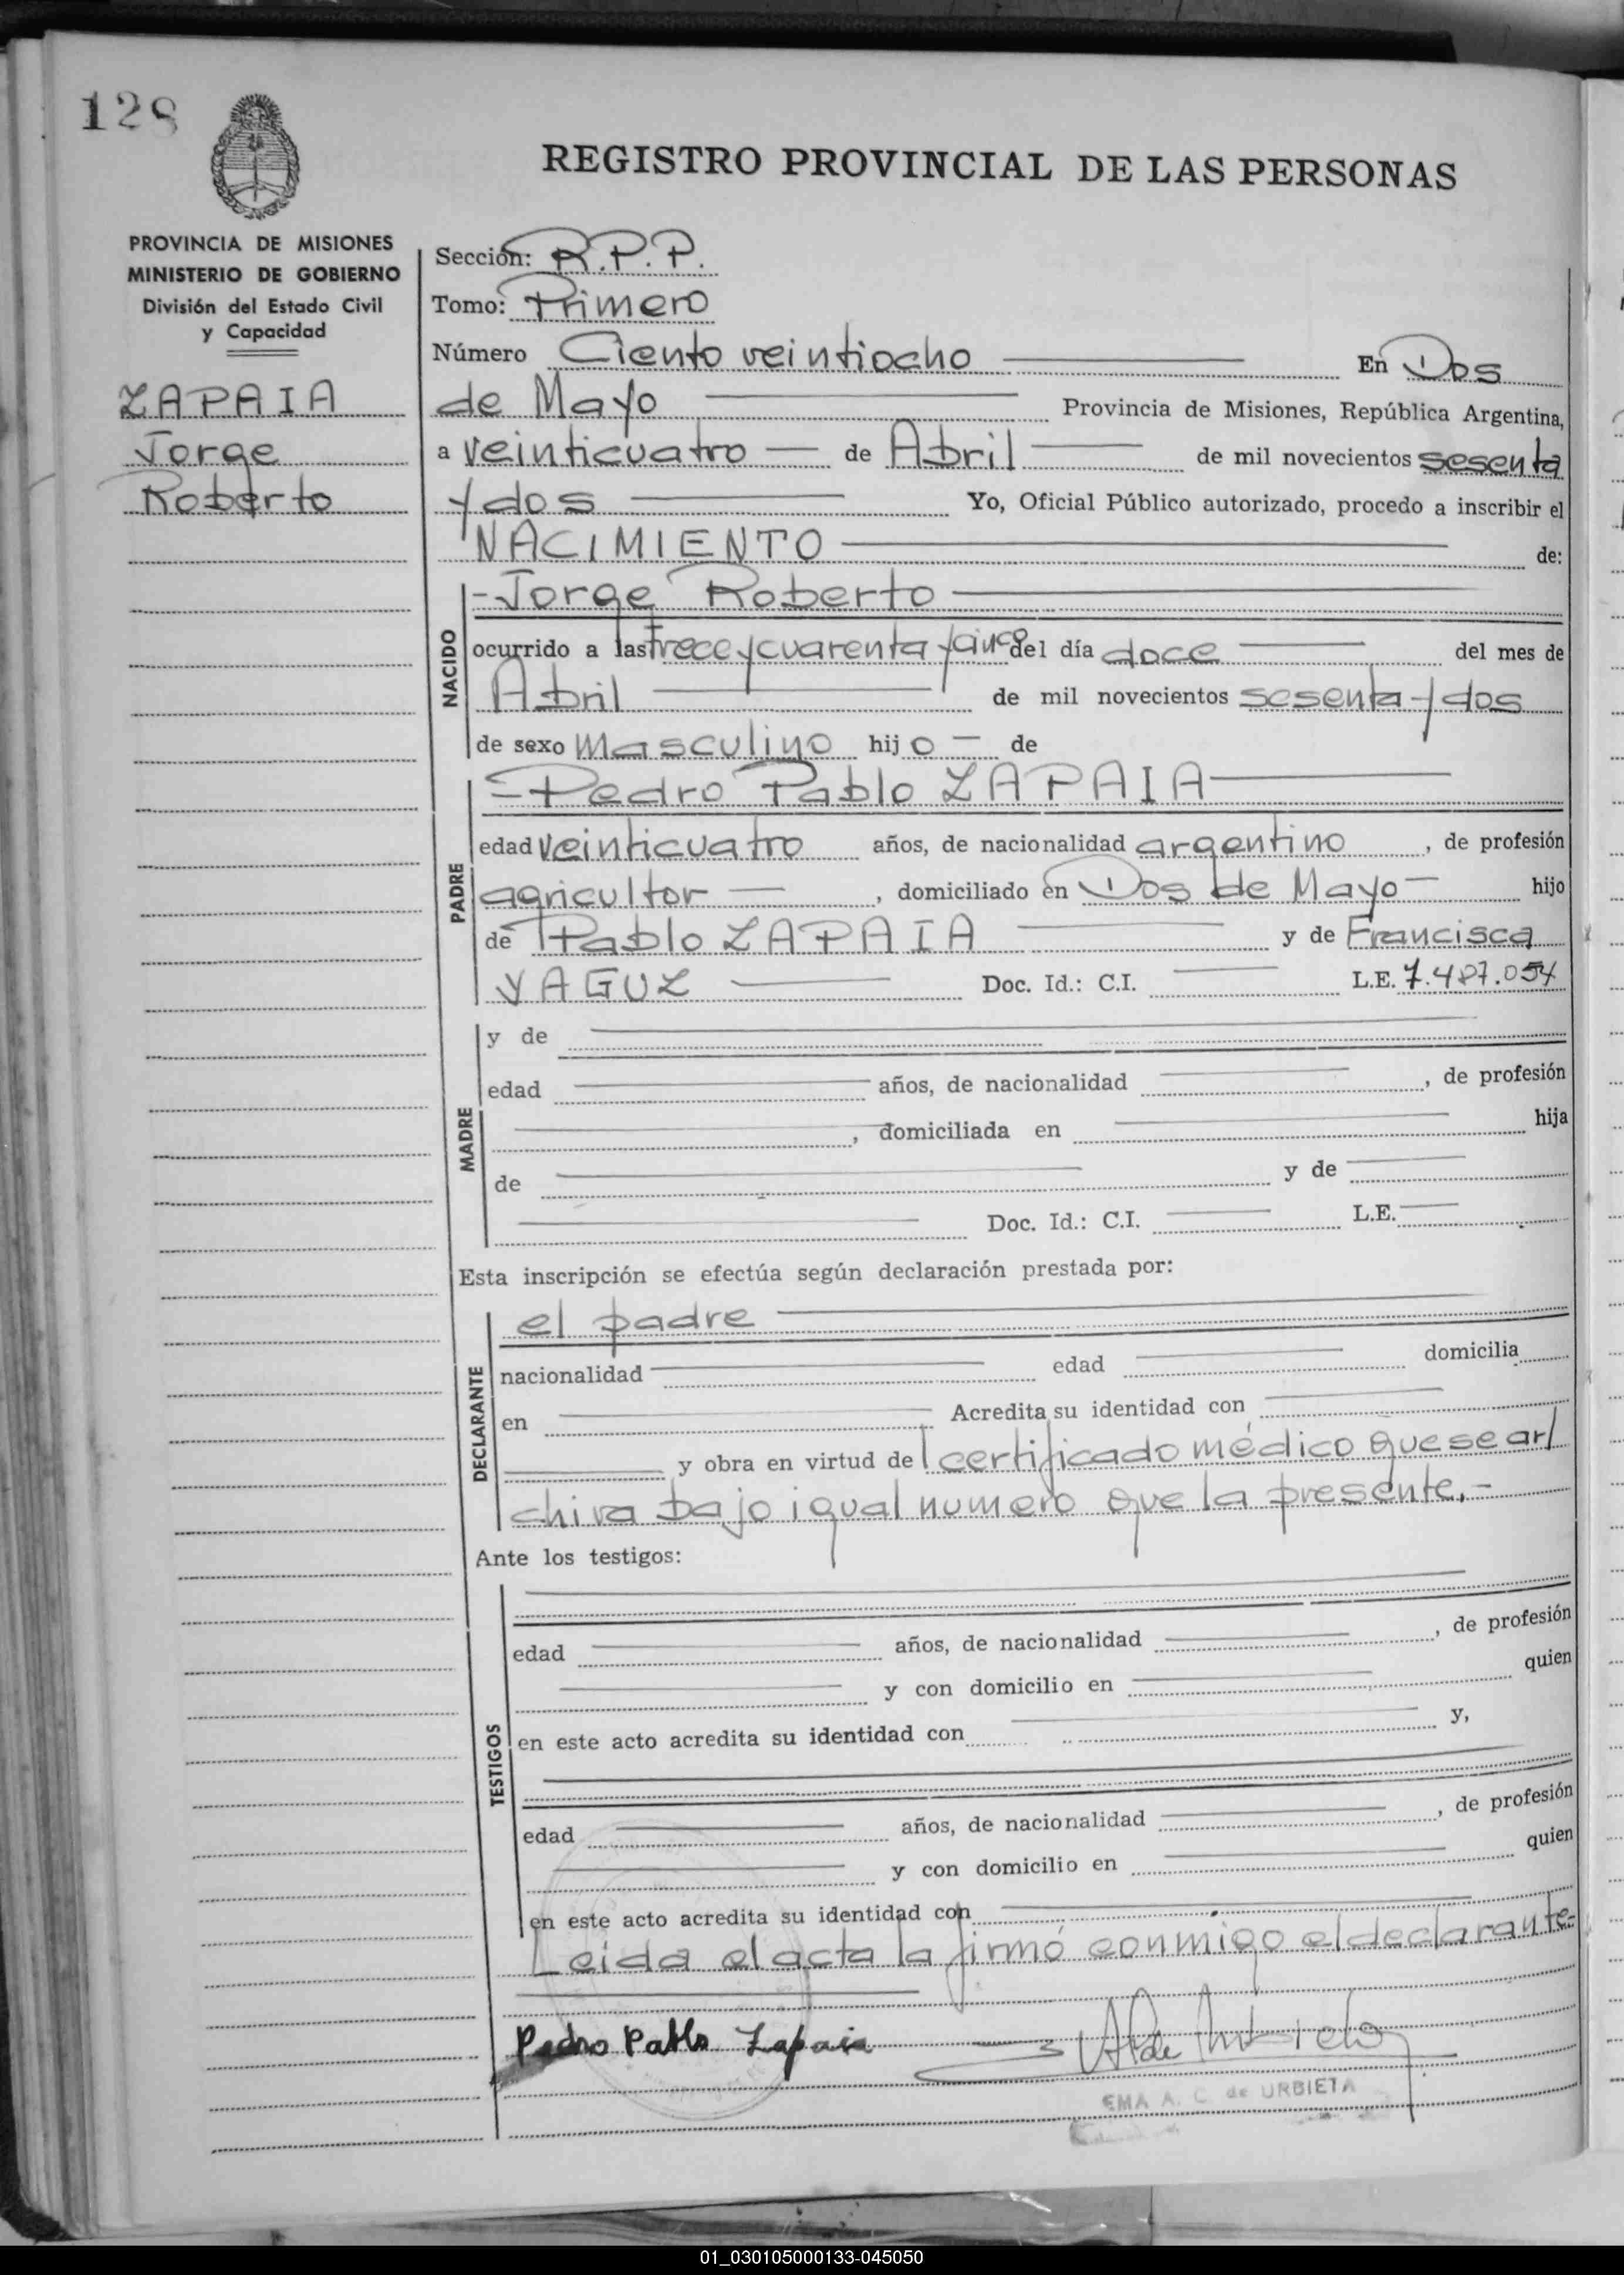 128
REGISTRO PROVINCIAL DE LAS PERSONAS
PROVINCIA DE MISIONES
MINISTERIO DE GOBIERNO
División del Estado Civil
y Capacidad
ZAPAIA
Jorge
Roberto
Sección: R.P.P.
Tomo: Primero
Número Ciento veintiocho En Dos
de Mayo Provincia de Misiones, República Argentina,
a veinticuatro de Abril de mil novecientos sesenta
y dos Yo, Oficial Público autorizado, procedo a inscribir el
NACIMIENTO de:
NACIDO
-Jorge Roberto
ocurrido a las trece y cuarenta y cinco del día doce del mes de
Abril de mil novecientos sesenta y dos
de sexo masculino hijo de
PADRE
-Pedro Pablo ZAPAIA
edad veinticuatro años, de nacionalidad argentino, de profesión
agricultor, domiciliado en Dos de Mayo hijo
de Pablo ZAPAIA y de Francisca
YAGUZ Doc. Id.: C.I. L.E. 7.487.054
MADRE
y de
edad años, de nacionalidad , de profesión
, domiciliada en hija
de y de
Doc. Id.: C.I. L.E.
Esta inscripción se efectúa según declaración prestada por:
DECLARANTE
el padre
nacionalidad edad domicilia
en Acredita su identidad con
y obra en virtud del certificado médico que se ar/
chiva bajo igual numero que la presente.-
Ante los testigos:
TESTIGOS
edad años, de nacionalidad , de profesión
y con domicilio en quien
en este acto acredita su identidad con y,
edad años, de nacionalidad , de profesión
y con domicilio en quien
en este acto acredita su identidad con
Leida el acta la firmó conmigo el declarante.-
Pedro Pablo Zapaia
EMA A. C. de URBIETA
01_030105000133-045050